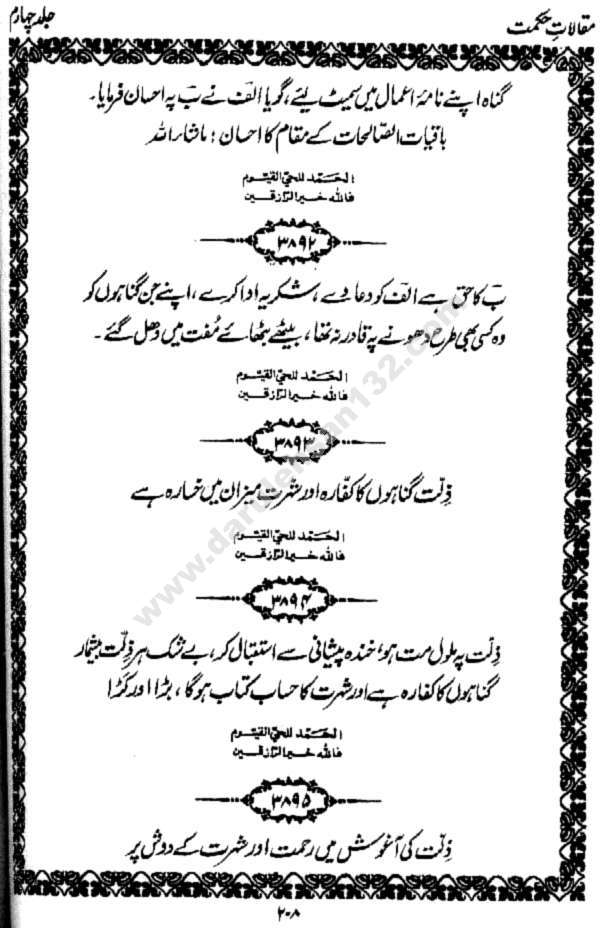 مقالاتِ حکمت
جلد چہارم
گناہ اپنے نامۂ اعمال میں سمیٹ لیئے، گویا الف نے ب پہ احسان فرمایا۔
باقیات الصّالحات کے مقام کا احسان! ماشاءاللہ
الحَمد للحیّ القیّوم
فاللہ خیر الرّازقین
۳۸۹۲
ب کا حق ہے الف کو دعا دے، شکریہ ادا کرے، اپنے جن گناہوں کو
وہ کسی بھی طرح دھونے پہ قادر نہ تھا، بیٹھے بٹھائے مُفت میں دُھل گئے۔
الحَمد للحیّ القیّوم
فاللہ خیر الرّازقین
۳۸۹۳
ذِلّت گناہوں کا کفّارہ اور شہرت میزان میں خسارہ ہے
الحَمد للحیّ القیّوم
فاللہ خیر الرّازقین
۳۸۹۴
ذِلّت پہ ملول مت ہو، خندہ پیشانی سے استقبال کر، بے شک ہر ذِلّت بیشمار
گناہوں کا کفارہ ہے اور شہرت کا حساب کتاب ہوگا، بڑا اور کڑا
الحَمد للحیّ القیّوم
فاللہ خیر الرّازقین
۳۸۹۵
ذِلّت کی آغوش میں رحمت اور شہرت کے دوش پر
۲۰۸